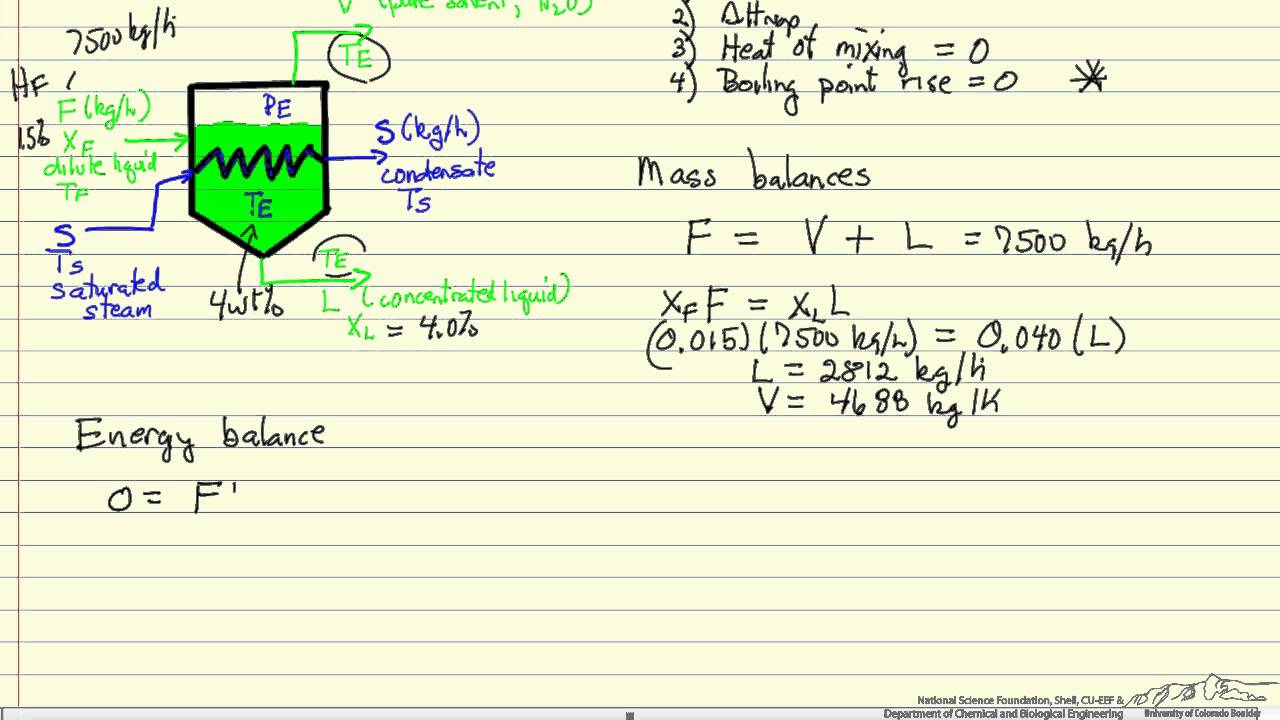 V (pure solvent, H₂O)
7500 kg/h
TE
HF (
F (kg/h)
1.5%
XF
dilute liquid
TF
PE
TE
S (kg/h)
condensate
Ts
S
Ts
saturated
steam
4 wt%
TE
L (concentrated liquid)
XL = 4.0%
2) ΔHvap
3) Heat of mixing = 0
4) Boiling point rise = 0 *
Mass balances
F = V + L = 7500 kg/h
XF F = XL L
(0.015)(7500 kg/h) = 0.040 (L)
L = 2812 kg/h
V = 4688 kg/h
Energy balance
0 = F'
National Science Foundation, Shell, CU-EEF &
Department of Chemical and Biological Engineering
University of Colorado Boulder